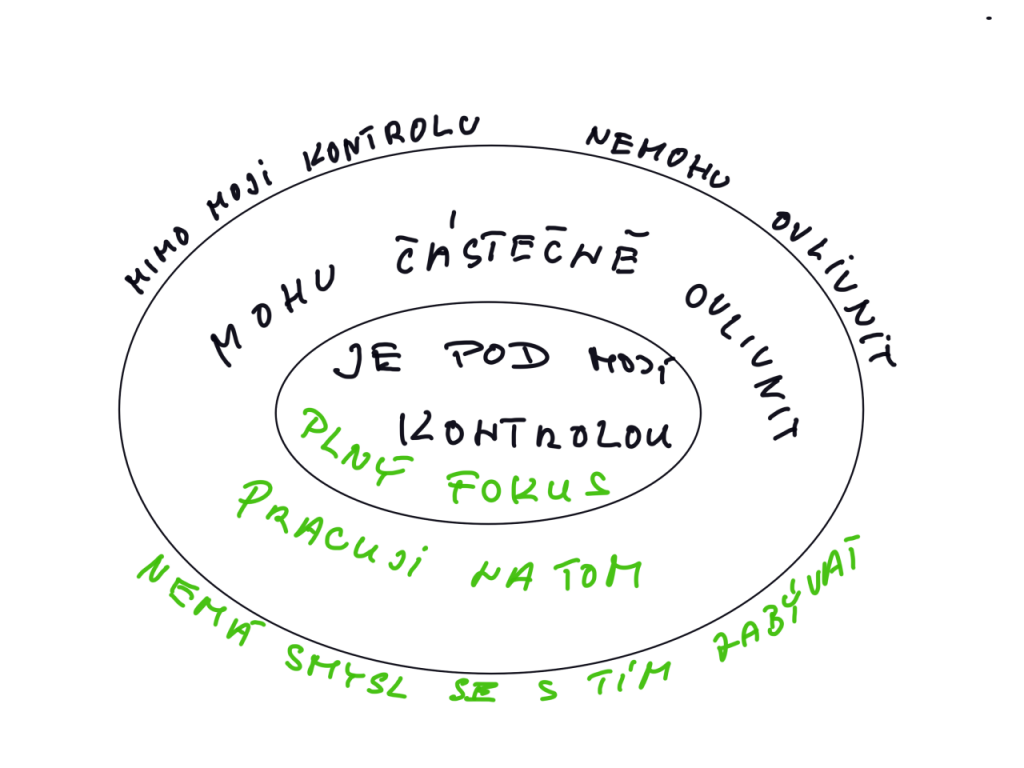 MIMO MOJI KONTROLU NEMOHU OVLIVNIT
MOHU ČÁSTEČNĚ OVLIVNIT
JE POD MOJÍ
KONTROLOU
PLNÝ FOKUS
PRACUJI NA TOM
NEMÁ SMYSL SE S TÍM ZABÝVAT